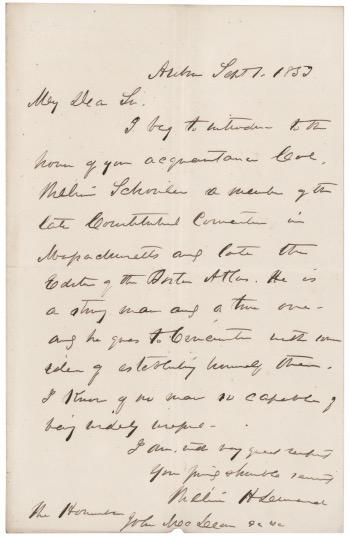 Auburn Sept 1. 1853
My Dear Sir.
I beg to introduce to the
honor of your acquaintance Col.
William Schouler a member of the
late Constitutional Convention in
Massachusetts and late the
Editor of the Boston Atlas. He is
a strong man and a true one -
and he goes to Cincinnati with some
idea of establishing himself there.
I know of no man so capable of
being widely useful -
I am, with very great respect
Your friend & humble servant
William H Seward
The Honorable
John McLean